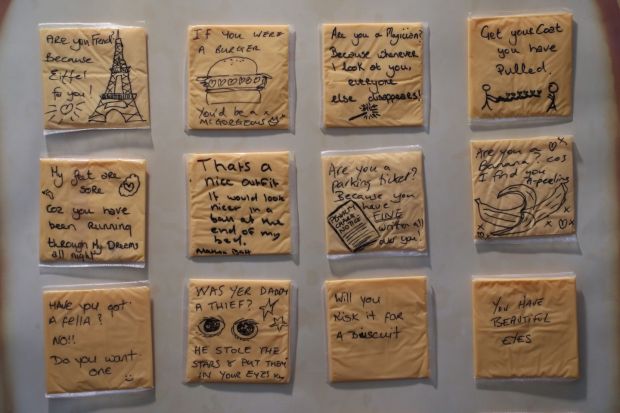 ARE YOU French?
Because
Eiffel
for you!
If YOU WERE
A BURGER
You'd be a
MCGORGEOUS
Are you a Magician?
Because whenever
I look at you,
everyone
else disappears!
Get your Coat
you have
Pulled.
My feet are
SORE
Coz you have
been Running
through My Dreams
all night
Thats a
nice outfit
It would look
nicer in a
ball at the
end of my
bed.
Are you a
parking ticket?
Because you
have
FINE
written all
over you!
PENALTY
CHARGE
NOTICE
Are you a
Banana? cos
I find you
A-peeling
x
x x
Have you got
A fella?
NO!!
Do you want
one
WAS YER DADDY
A THIEF?
HE STOLE THE
STARS & PUT THEM
IN YOUR EYES
Will you
Risk it for
A Biscuit
YOU HAVE
BEAUTIFUL
EYES